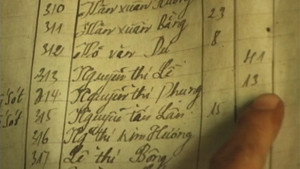 310 Trần Xuân
311 Trần Xuân Bảng 23
312 Đỗ Văn Du 8
313 Nguyễn thị Lể 41
Sót 314 Nguyễn thị Phung 13
Sót 315 Nguyễn tấn Lân 15
316 Ng thị Kim Hương
317 Lê thị Bông